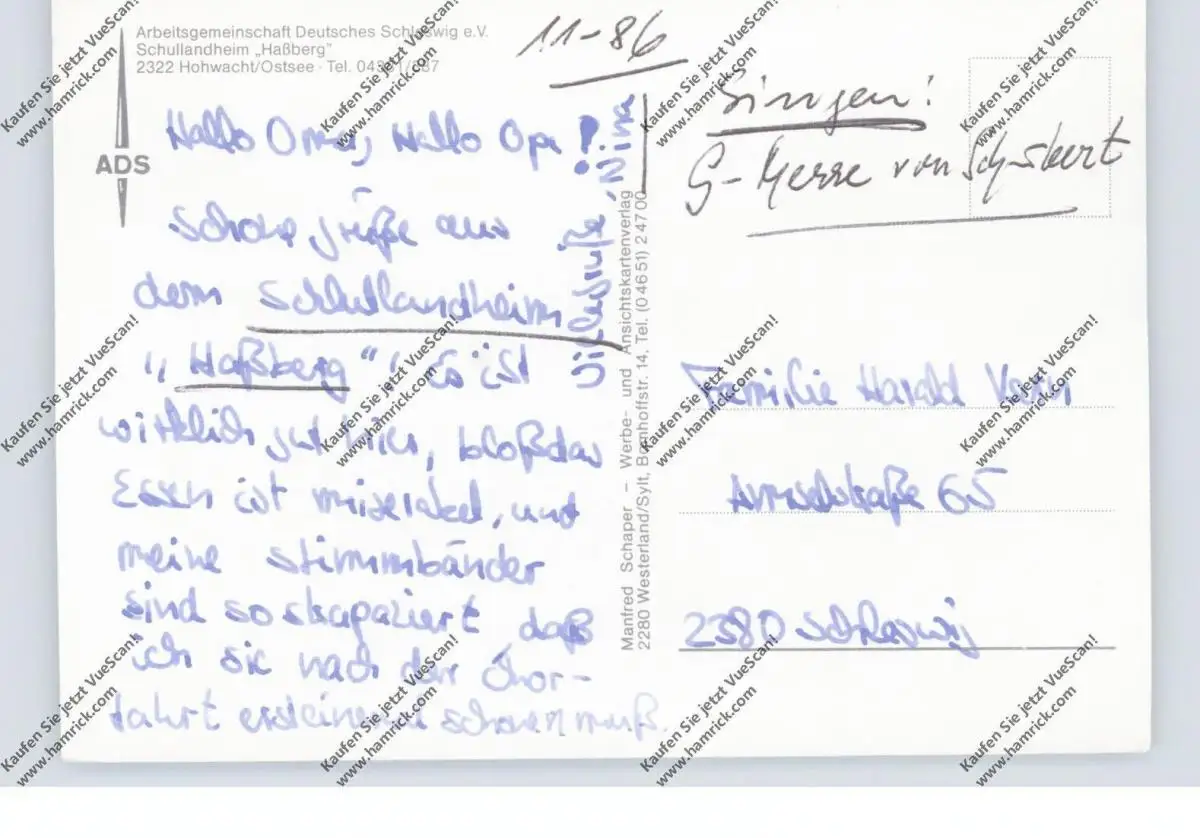 Arbeitsgemeinschaft Deutsches Schleswig e.V.
Schullandheim „Haßberg"
2322 Hohwacht/Ostsee · Tel.
ADS
11-86
Singen!
G-Messe von Schubert
Hallo Oma, Hallo Opa!
schöne grüße aus
dem Schullandheim
„Haßberg“! Es ist
wirklich gut hier, bloß das
Essen ist miserabel, und
meine stimmbänder
sind so skapaziert daß
ich sie nach der Chor-
fahrt ersteinmal schonen muß.
Nina
Manfred Schaper – Werbe- und Ansichtskartenverlag
2280 Westerland/Sylt, Bahnhofstr. 14, Tel. (04651) 24700
Familie Harald
65
2380 Schleswig
Kaufen Sie jetzt VueScan!
www.hamrick.com